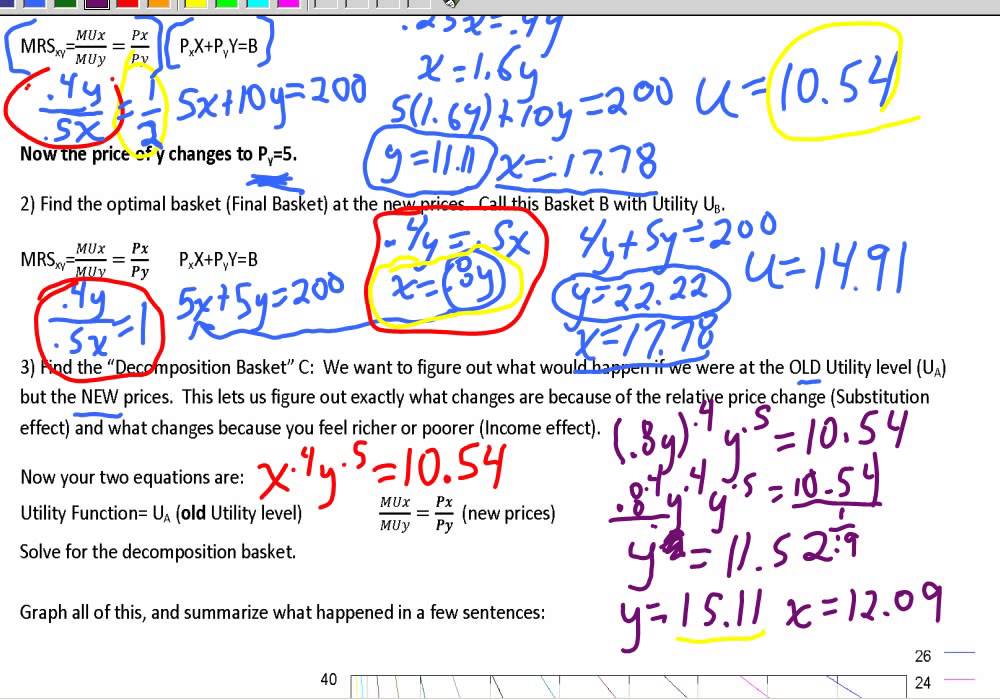 .25x=.4y
MRSxy=MUx/MUy=Px/Py PxX+PyY=B
x=1.6y
.4y/.5x=1/2 5x+10y=200
5(1.6y)+10y=200 u=10.54
Now the price of y changes to Py=5.
y=11.11 x=17.78
2) Find the optimal basket (Final Basket) at the new prices. Call this Basket B with Utility UB.
.4y=.5x 4y+5y=200
MRSxy=MUx/MUy=Px/Py PxX+PyY=B
u=14.91
.4y/.5x=1 5x+5y=200 x=.8y y=22.22
x=17.78
3) Find the “Decomposition Basket” C: We want to figure out what would happen if we were at the OLD Utility level (UA)
but the NEW prices. This lets us figure out exactly what changes are because of the relative price change (Substitution
effect) and what changes because you feel richer or poorer (Income effect).
(.8y)^.4 y^.5=10.54
Now your two equations are: x^.4y^.5=10.54
.8^.4y^.4y^.5=10.54
Utility Function= UA (old Utility level) MUx/MUy=Px/Py (new prices)
Solve for the decomposition basket. y=11.52^1/.9
Graph all of this, and summarize what happened in a few sentences: y=15.11 x=12.09
26
40
24